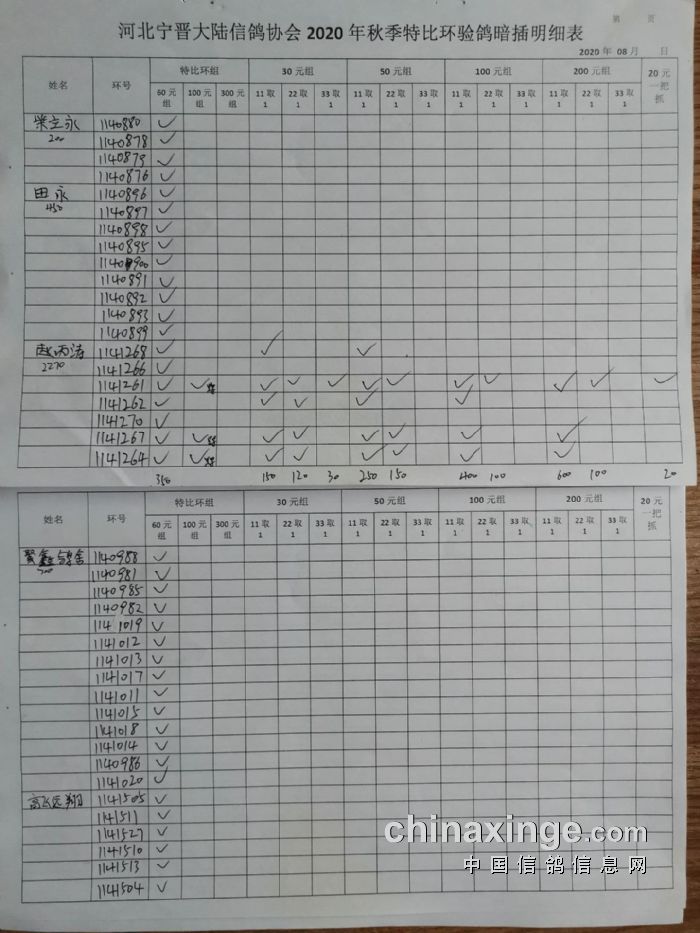 第 页
河北宁晋大陆信鸽协会2020年秋季特比环验鸽暗插明细表
2020年08月 日
姓名 环号 特比环组 30元组 50元组 100元组 200元组 20元一把抓
60元组 100元组 300元组 11取1 22取1 33取1 11取1 22取1 33取1 11取1 22取1 33取1 11取1 22取1 33取1
柴立永 1140880 ✓
200 1140878 ✓
1140879 ✓
1140876 ✓
田永 1140896 ✓
450 1140897 ✓
1140898 ✓
1140895 ✓
1140900 ✓
1140891 ✓
1140892 ✓
1140893 ✓
1140899 ✓
赵丙涛 1141268 ✓ ✓ ✓
2270 1141266 ✓
1141261 ✓ ✓ ✓ ✓ ✓ ✓ ✓ ✓ ✓ ✓ ✓ ✓
1141262 ✓ ✓ ✓ ✓ ✓
1141270 ✓
1141267 ✓ ✓ ✓ ✓ ✓ ✓ ✓ ✓
1141264 ✓ ✓ ✓ ✓ ✓ ✓ ✓ ✓
350 150 120 30 250 150 400 100 600 100 20
姓名 环号 特比环组 30元组 50元组 100元组 200元组 20元一把抓
60元组 100元组 300元组 11取1 22取1 33取1 11取1 22取1 33取1 11取1 22取1 33取1 11取1 22取1 33取1
鑫鸽舍 1140988 ✓
700 1140981 ✓
1140985 ✓
1140982 ✓
1141019 ✓
1141012 ✓
1141013 ✓
1141017 ✓
1141011 ✓
1141015 ✓
1141018 ✓
1141014 ✓
1140986 ✓
1141020 ✓
高飞远翔 1141505 ✓
1141511 ✓
1141527 ✓
1141510 ✓
1141513 ✓
1141504 ✓
chinaxinge.com
中国信鸽信息网